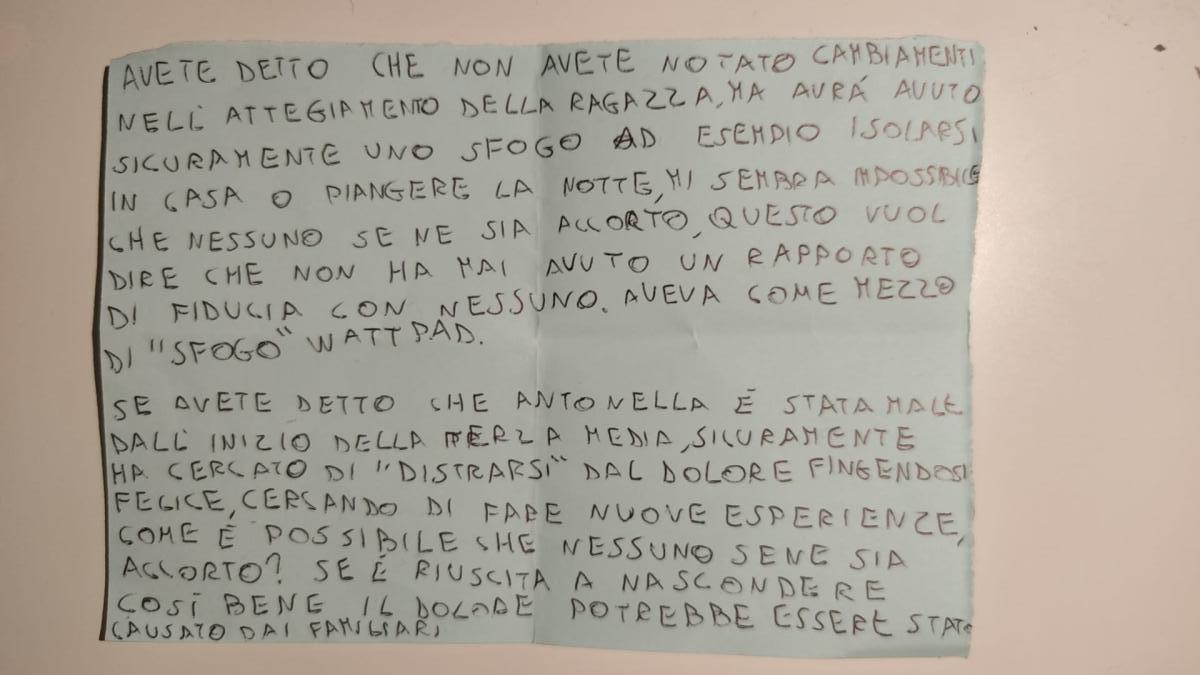 AVETE DETTO CHE NON AVETE NOTATO CAMBIAMENTI
NELL' ATTEGIAMENTO DELLA RAGAZZA, MA AVRÁ AVUTO
SICURAMENTE UNO SFOGO AD ESEMPIO ISOLARSI
IN CASA O PIANGERE LA NOTTE, MI SEMBRA IMPOSSIBILE
CHE NESSUNO SE NE SIA ACCORTO, QUESTO VUOL
DIRE CHE NON HA MAI AVUTO UN RAPPORTO
DI FIDUCIA CON NESSUNO. AVEVA COME MEZZO
DI "SFOGO" WATTPAD.
SE AVETE DETTO CHE ANTONELLA É STATA MALE
DALL' INIZIO DELLA TERZA MEDIA, SICURAMENTE
HA CERCATO DI "DISTRARSI" DAL DOLORE FINGENDOSI
FELICE, CERCANDO DI FARE NUOVE ESPERIENZE,
COME É POSSIBILE CHE NESSUNO SENE SIA
ACCORTO? SE É RIUSCITA A NASCONDERE
COSÍ BENE IL DOLORE POTREBBE ESSERE STATO
CAUSATO DAI FAMIGLIARI